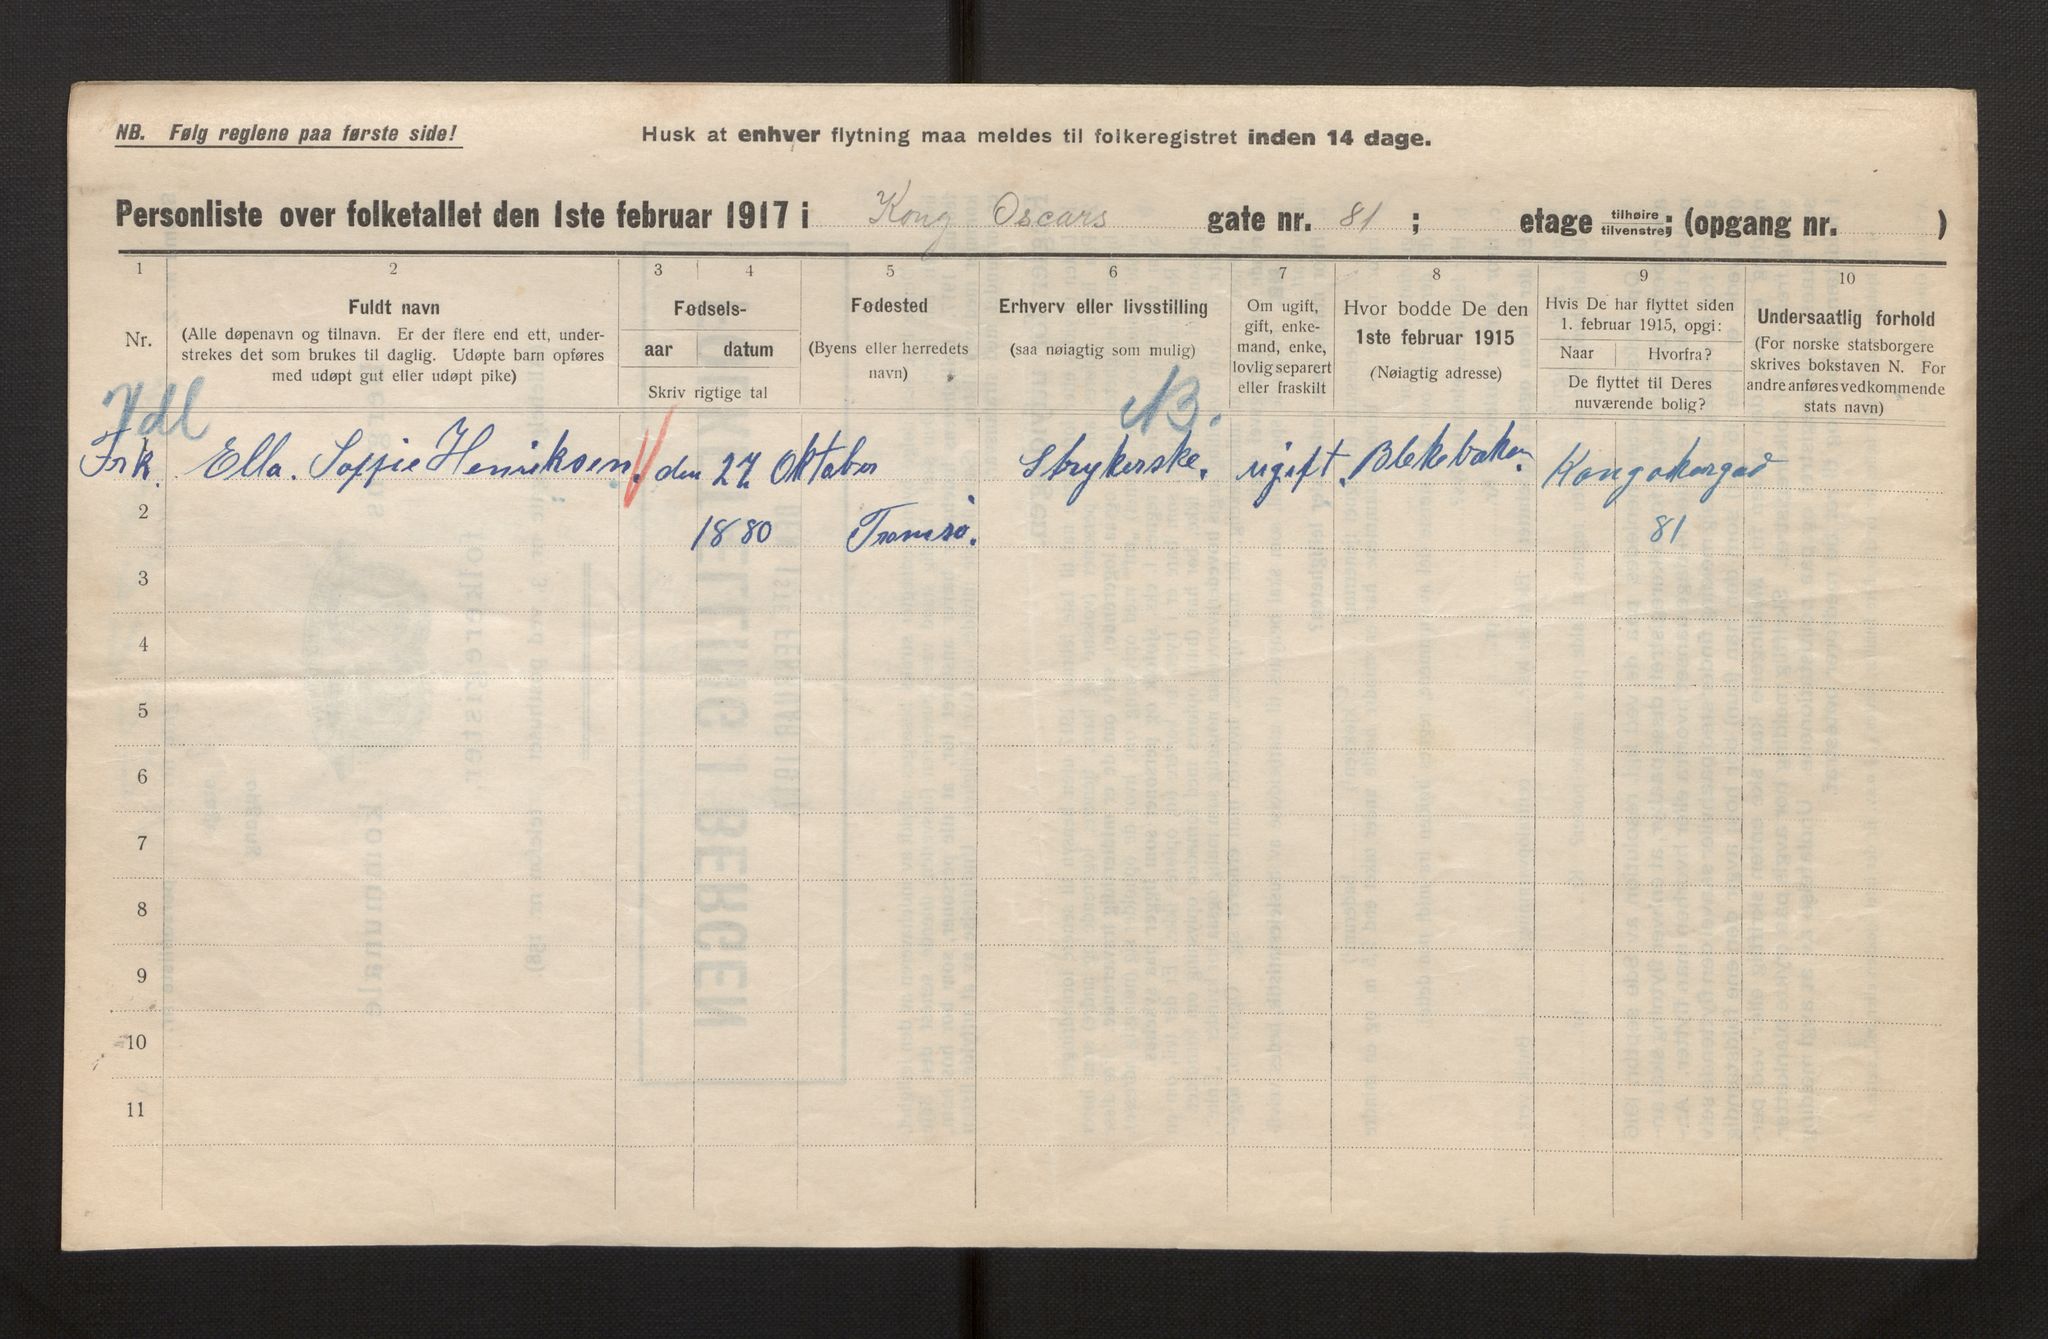 NB. Følg reglene paa første side!
Husk at enhver flytning maa meldes til folkeregistret inden 14 dage.
Personliste over folketallet den 1ste februar 1917 i Kong Oscars gate nr. 81 ; etage tilhøire tilvenstre; (opgang nr. )
1 2 3 4 5 6 7 8 9 10
Nr.
Fuldt navn
(Alle døpenavn og tilnavn. Er der flere end ett, under-
strekes det som brukes til daglig. Udøpte barn opføres
med udøpt gut eller udøpt pike)
Fødsels-
aar datum
Skriv rigtige tal
Fødested
(Byens eller herredets
navn)
Erhverv eller livsstilling
(saa nøiagtig som mulig)
Om ugift,
gift, enke-
mand, enke,
lovlig separert
eller fraskilt
Hvor bodde De den
1ste februar 1915
(Nøiagtig adresse)
Hvis De har flyttet siden
1. februar 1915, opgi:
Naar Hvorfra?
De flyttet til Deres
nuværende bolig?
Undersaatlig forhold
(For norske statsborgere
skrives bokstaven N. For
andre anføres vedkommende
stats navn)
Frk. Ella. Soffie Henriksen. den 27 Oktober Strykerske. ugift. Blekebaken. Kongokargad
2 1880 Tromsø. 81
3
4
5
6
7
8
9
10
11
BERGEN